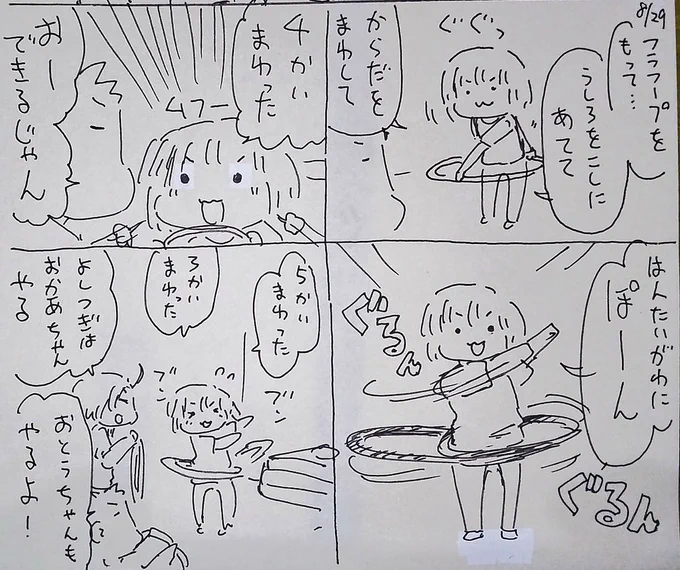 8/29
フラフープを
もって…
うしろをこしに
あてて
ぐぐっ
からだを
まわして
はんたいがわに
ぽーん
ぐるん
ぐるん
4かい
まわった
ムフー
おー
できるじゃん
5かい
まわった
3かい
まわった
ブン
ブン
よしつぎは
おかあちゃん
やる
おとうちゃんも
やるよ！